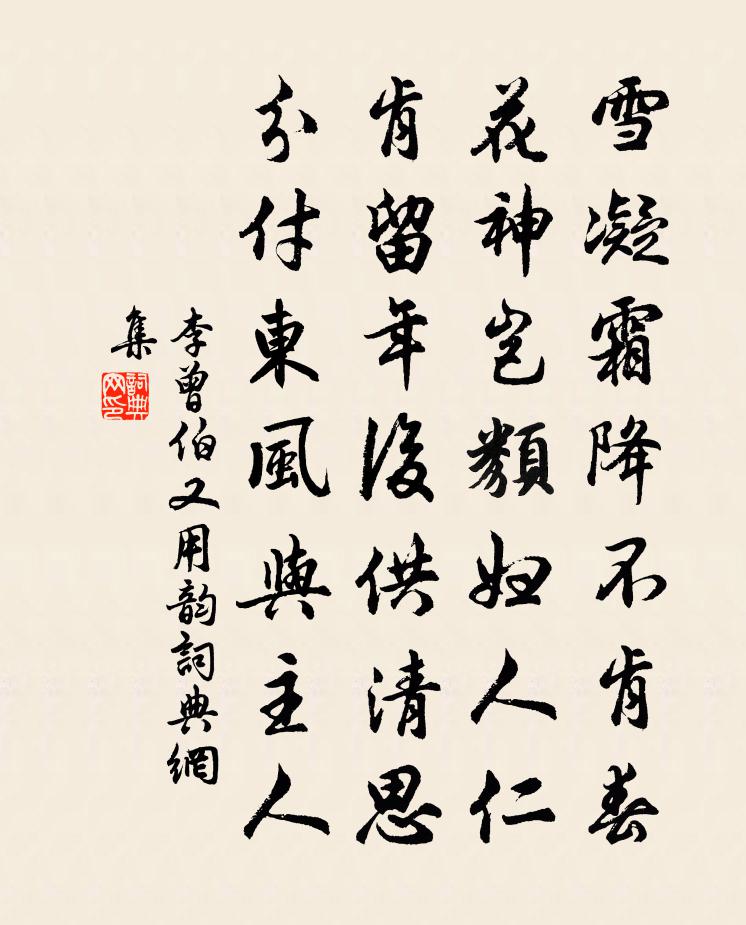 雪凝霜降不肯春
花神豈類婦人仁
肯留年後供清思
分付東風與主人
李曾伯又用韵詞典網
集
詞典网印